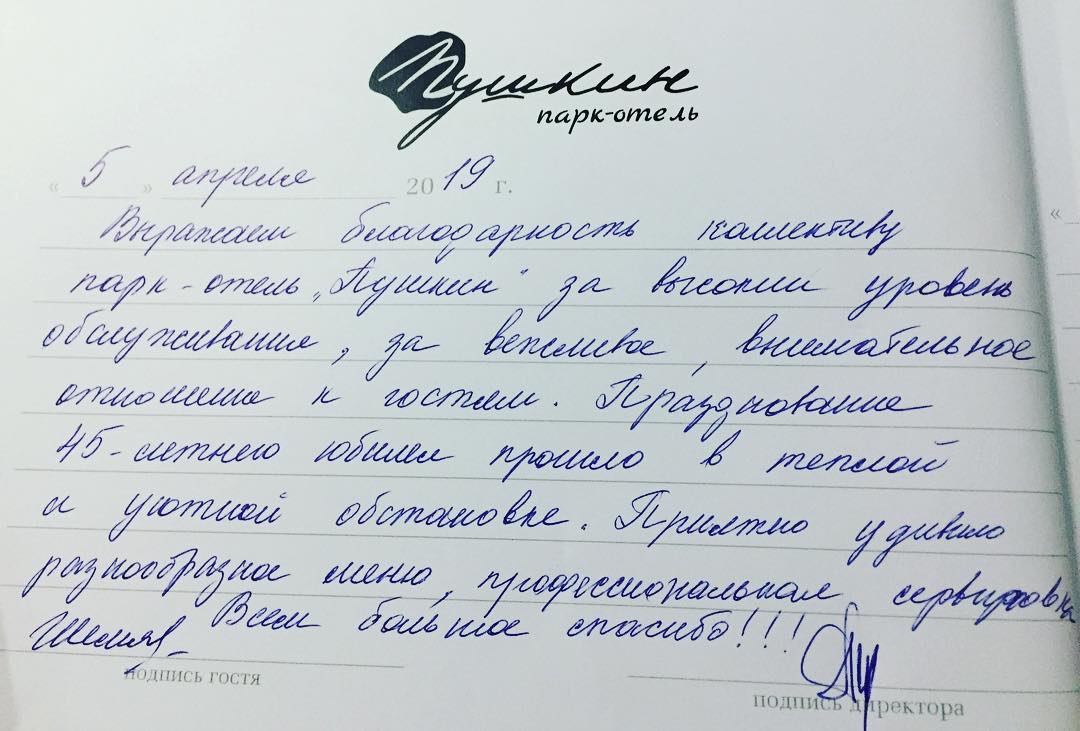 Пушкин
парк-отель
« 5 » апреля 2019 г.
Выражаем благодарность коллективу
парк-отель „Пушкин“ за высокий уровень
обслуживания, за вежливое, внимательное
отношение к гостям. Празднование
45-летнего юбилея прошло в теплой
и уютной обстановке. Приятно удивило
разнообразное меню, профессиональная сервировка
Всем большое спасибо!!!
подпись гостя
подпись директора
«